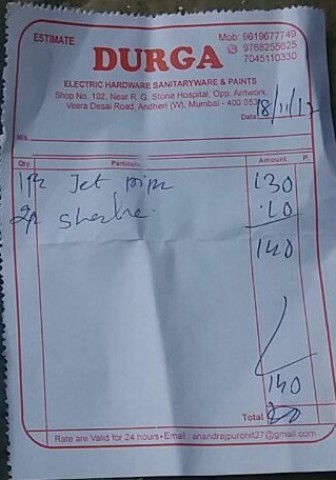 ESTIMATE
Mob: 9619677749
9768255625
7045110330
DURGA
ELECTRIC HARDWARE SANITARYWARE & PAINTS
Shop No. 102, Near R. G. Stone Hospital, Opp. Arrtwork,
Veera Desai Road, Andheri (W), Mumbai - 400 053
Date 18/11/17
M/s.
Qty. Particulars Amount P.
1 Jet pipe 130
2 10
140
140
Total
Rate are Valid for 24 hours • Email : anandrajpurohit27@gmail.com